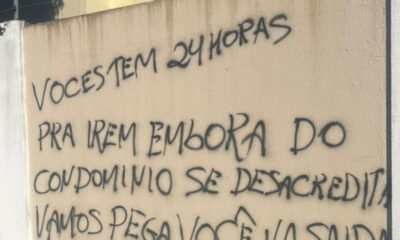 VOCES TEM 24 HORAS
PRA IREM EMBORA DO
CONDOMINIO SE DESACREDITA
VAMOS PEGA VOCÊ NA SAIDA